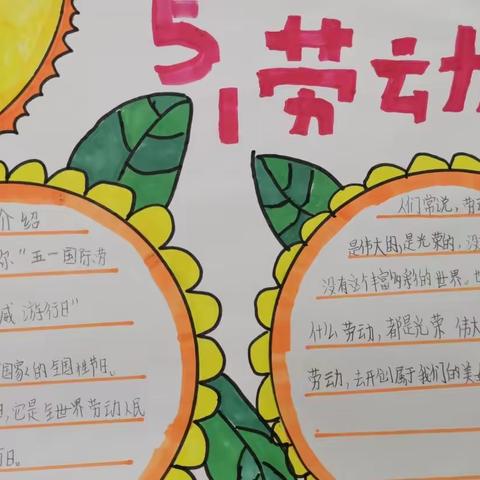 5
1劳动
介绍
称"五一国际劳
威游行日"
国家的全国性节日。
日,它是全世界劳动人民
日。
人们常说,劳动
是伟大的,是光荣的,没
没有这个丰富多彩的世界。
什么劳动,都是光荣伟大
劳动,去开创属于我们的美